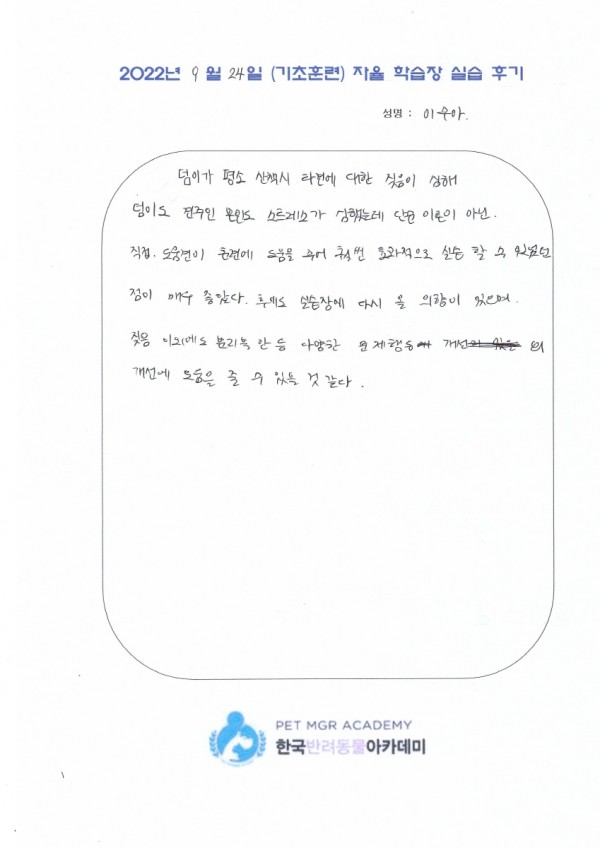 2022년 9월 24일 (기초훈련) 자율 학습장 실습 후기
성명 : 이수아.
덤이가 평소 산책시 타견에 대한 짖음이 심해
덤이도 견주인 본인도 스트레스가 심했는데 단순 이론이 아닌.
직접. 도움견이 훈련에 도움을 주어 훨씬 효과적으로 실습 할 수 있었던
점이 매우 좋았다. 후에도 실습장에 다시 올 의향이 있으며.
짖음 이외에도 분리불안 등 다양한 문제행동 개선
개선에 도움을 줄 수 있을 것 같다.
PET MGR ACADEMY
한국반려동물아카데미